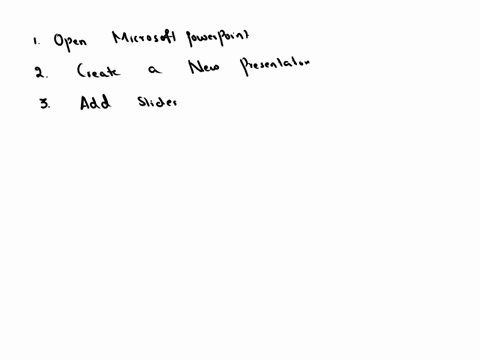 1. Open Microsoft PowerPoint
2. Create a New Presentation
3. Add Slides